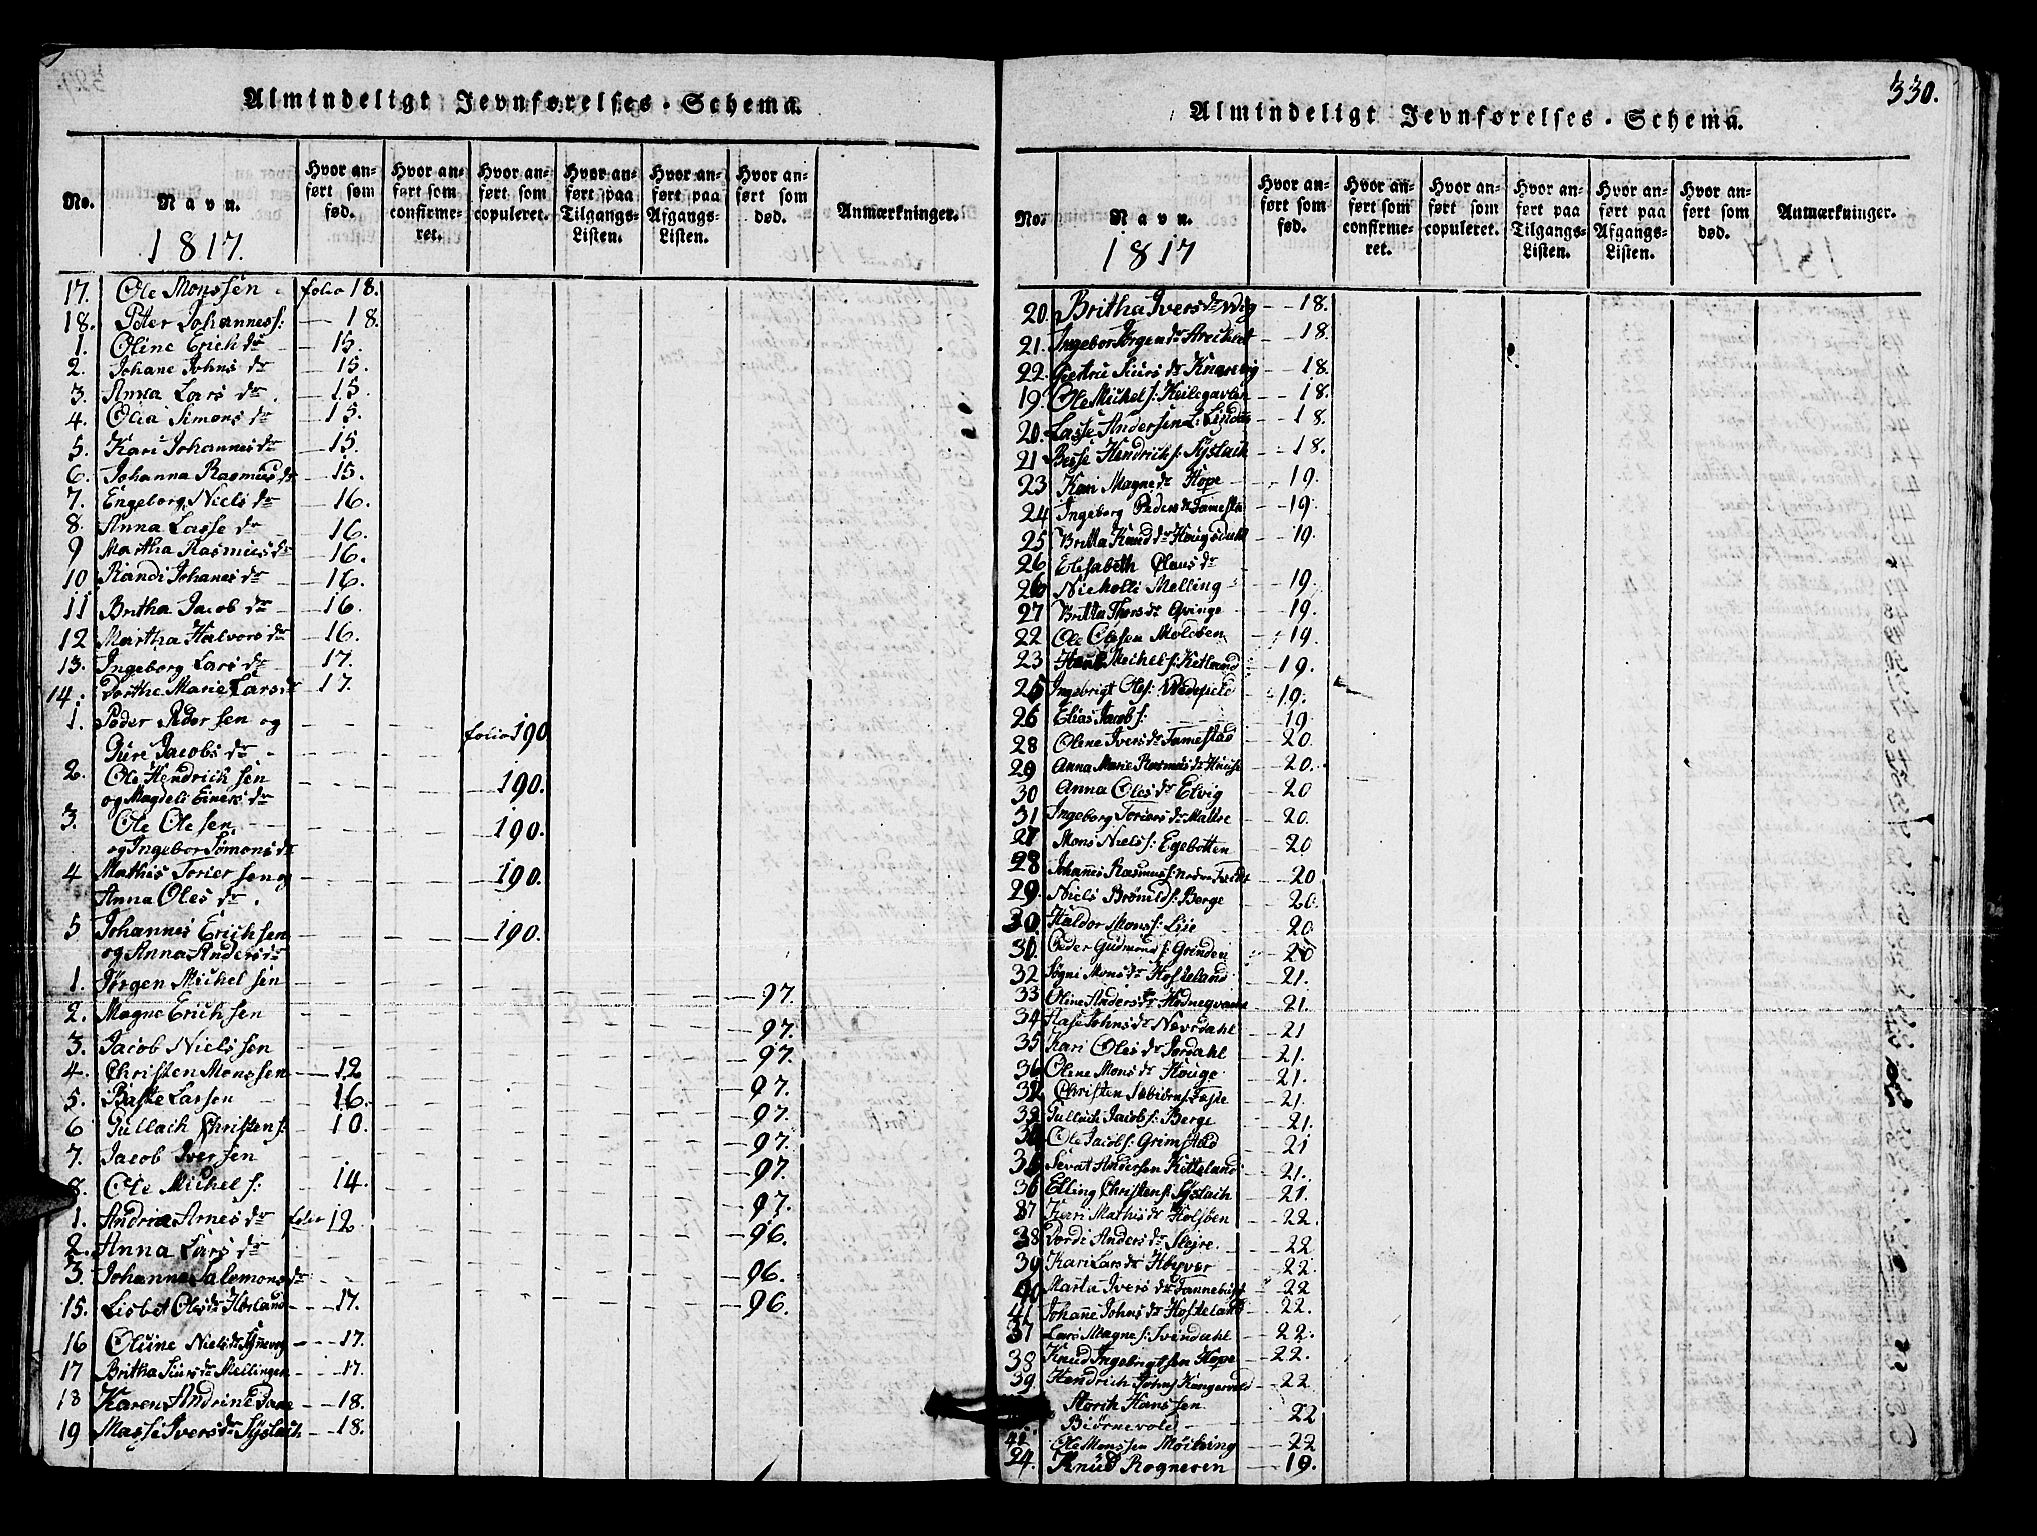 Almindeligt Jevnførelses-Schema.
No.
Navn.
1817.
Hvor anført som fød.
Hvor anført som confirmeret.
Hvor anført som copuleret.
Hvor anført paa Tilgangs-Listen.
Hvor anført paa Afgangs-Listen.
Hvor anført som død.
Anmærkninger.
17. Ole Monssen folio 18.
18. Peter Johannes s: 18.
1. Oline Erich dr 15.
2. Johane Johns dr 15.
3. Anna Lars dr 15.
4. Olia Simons dr 15.
5. Kari Johannes dr 15.
6. Johanna Rasmus dr 15.
7. Engeborg Niels dr 16.
8. Anna Lasse dr 16.
9 Martha Rasmus dr 16.
10 Randi Johanes dr 16.
11 Britha Jacob dr 16.
12 Martha Halvors dr 16.
13. Ingeborg Lars dr 17.
14. Dorthe Marie Lars dr 17.
1. Peder Pedersen og folio 190
Guri Jacobs dr
2. Ole Hendrichsen 190.
og Magdeli Einers dr
3. Ole Olesen 190.
og Ingebor Simons dr
4 Mathis Toriersen og 190.
Anna Oles dr.
5 Johannes Erichsen 190.
og Anna Anders dr
1. Jörgen Michelsen 97.
2. Magne Erichsen 97.
3. Jacob Nielssen 97.
4. Christen Monssen 12 97.
5. Baste Larsen 16. 97.
6 Gullach Christens: 10. 97.
7. Jacob Iversen 97.
8. Ole Michels: 14. 97.
1. Andrie Arnes dr folio 12. 96.
2. Anna Lars dr
3. Johanne Salomons dr 96.
15. Lisbet Oles dr Hörland 17. 96.
16 Oluine Niels dr 17.
17 Britha Siurs dr Mellingen 17.
18 Karen Andrine 18.
19 Masse Ivers dr Syslach 18.
330.
Almindeligt Jevnførelses-Schema.
No.
Navn.
1817
Hvor anført som fød.
Hvor anført som confirmeret.
Hvor anført som copuleret.
Hvor anført paa Tilgangs-Listen.
Hvor anført paa Afgangs-Listen.
Hvor anført som død.
Anmærkninger.
20. Britha Ivers dr Wig 18.
21. Ingebor Jörgen dr 18.
22. Giertru Siurs dr Knarvig 18.
19. Ole Michels: Heilegavlen 18.
20. Lasse Andersen L: Lindås 18.
21 Besse Hendrichs: Syslach 18.
23 Kari Magne dr Hope 19.
24 Ingeborg Peders dr Tamestad 19.
25 Britta Knud dr Hougsdahl 19.
26 Elisabeth Claus dr
26 Nicholli Melling 19.
27 Britta Thors dr Qvinge 19.
22 Ole Olesen Molvsen 19.
23 Michels: Ketland 19.
25 Ingebrigt Oles: 19.
26 Elias Jacobs: 19.
28 Olene Ivers dr Tamestad 20.
29 Anna Marie Rasmus dr 20.
30 Anna Oles dr Elvig 20
31 Ingeborg Toriers dr Matre 20.
27 Mons Niels s: Egebotten 20
28 Johañes Rasmus s: 20
29. Niels Brönilds: Berge 20.
30 Haldor Mons s: Lie 20.
30. Peder Gudmunds: Grinden 20
32 Sögni Mons dr Hosteland 21.
33 Oline Anders dr 21.
34 Aase Johns dr Nævdahl 21
35 Kari Oles dr Jordahl 21.
36 Olene Mons dr Houge 21.
32 Christen 21.
33 Gullach Jacobs: Berge 21.
Ole Jacobs: Grimstad 21
35 Sevat Andersen Kitteland 21.
36 Elling Christens: Syslach 21.
37 Kari Mathis dr 22.
38 Anders dr Sleire 22
39 Kari Lars dr 22
40 Marta Ivers dr 22
41 Johañe Johns dr Hosteland 22.
37 Lars Magne s: Svindahl 22.
38 Knud Ingebrigtsen Hope 22.
39 Hendrich Johns 22
Hanssen
Biörnevold 22
Ole Monssen 22
24. Knud Rognesen 19.